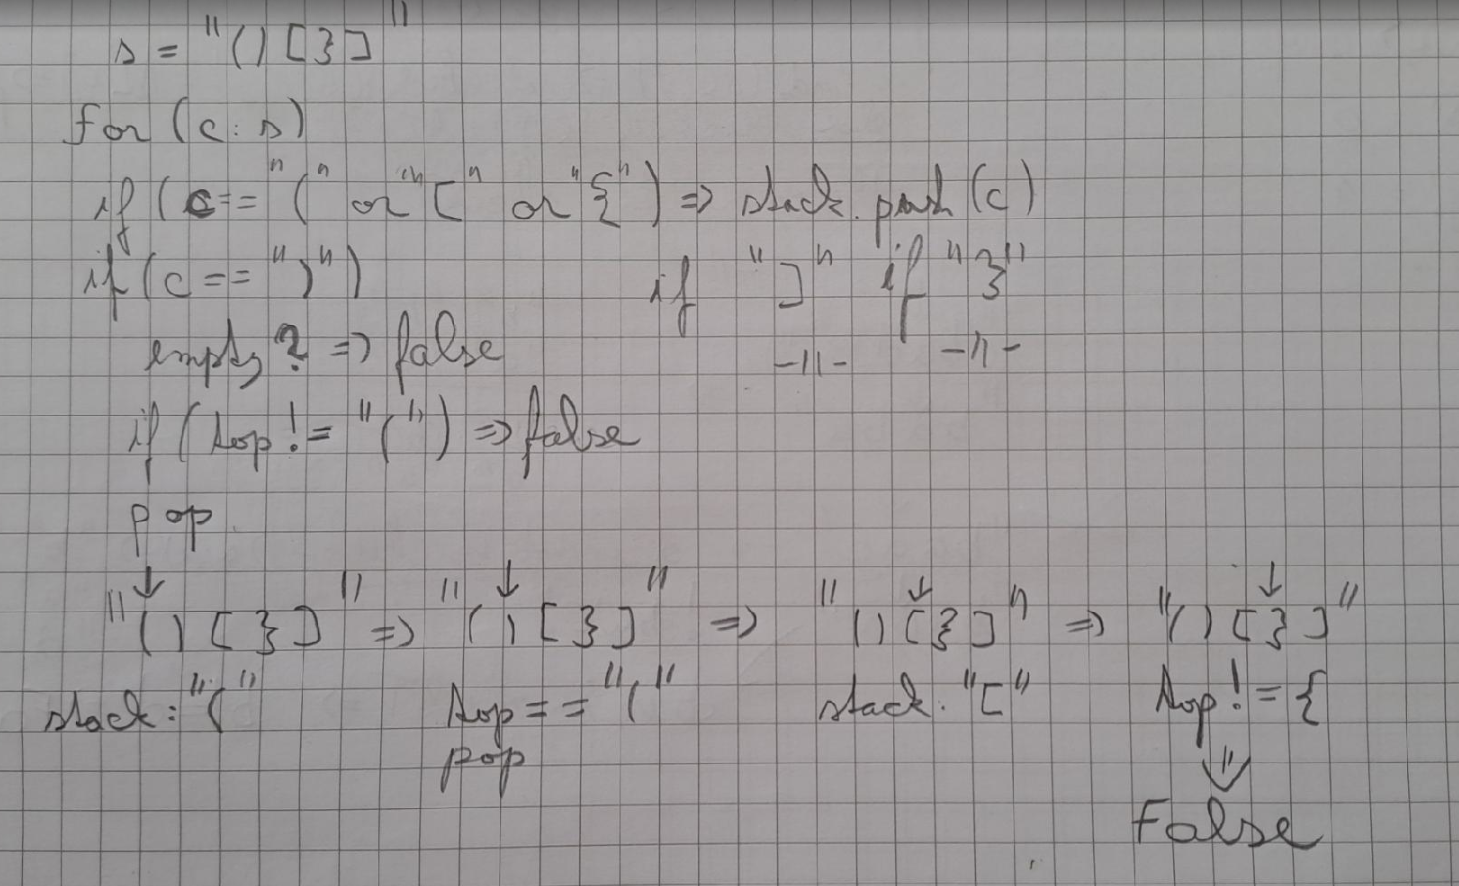 s = "()[}]"
for (c: s)
if (c == "(" or "[" or "{") => stack.push(c)
if (c == ")") if "]" if "}"
empty? => false -||- -||-
if (top != "(") => false
pop
"()[}]" => "()[}]" => "()[}]" => "()[}]"
stack: "(" top == "(" stack: "[" top != {
pop
False